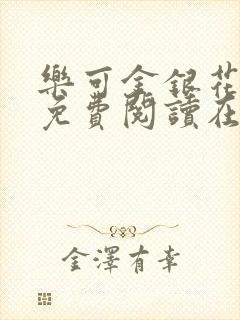 樂可金銀花
免費閱讀在
金澤有幸